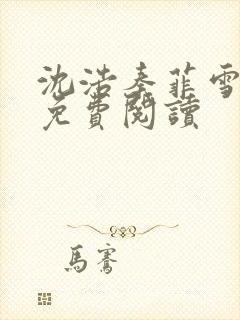 沈浩秦菲雪
免費閱讀
馬騫